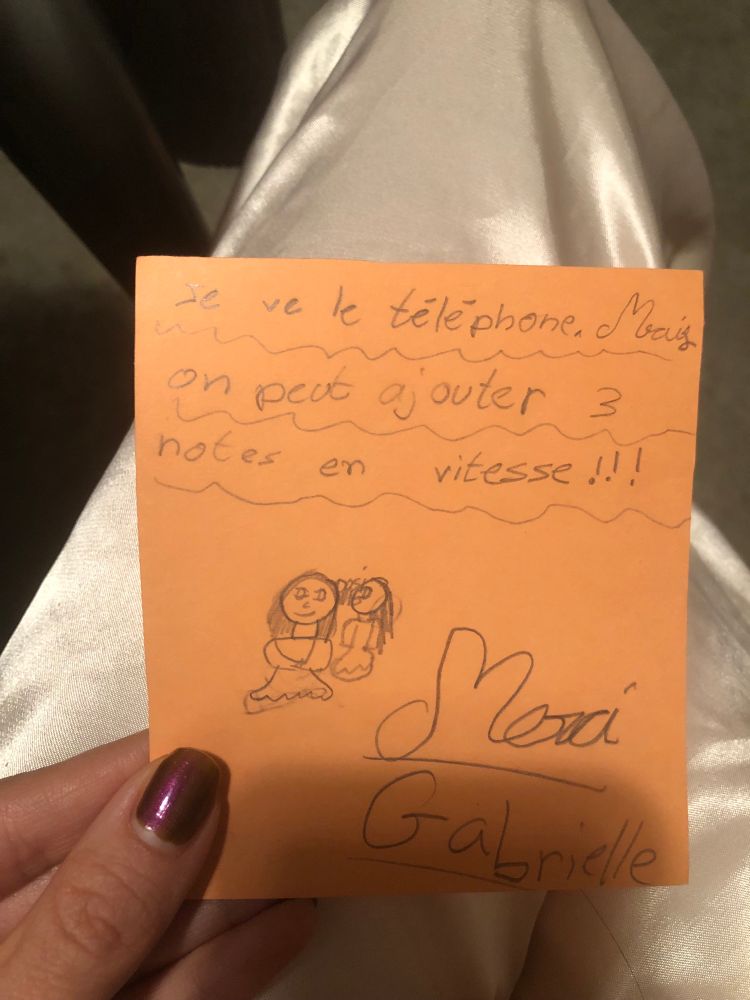 Je ve le téléphone. Mais
on peut ajouter 3
notes en vitesse!!!
Merci
Gabrielle